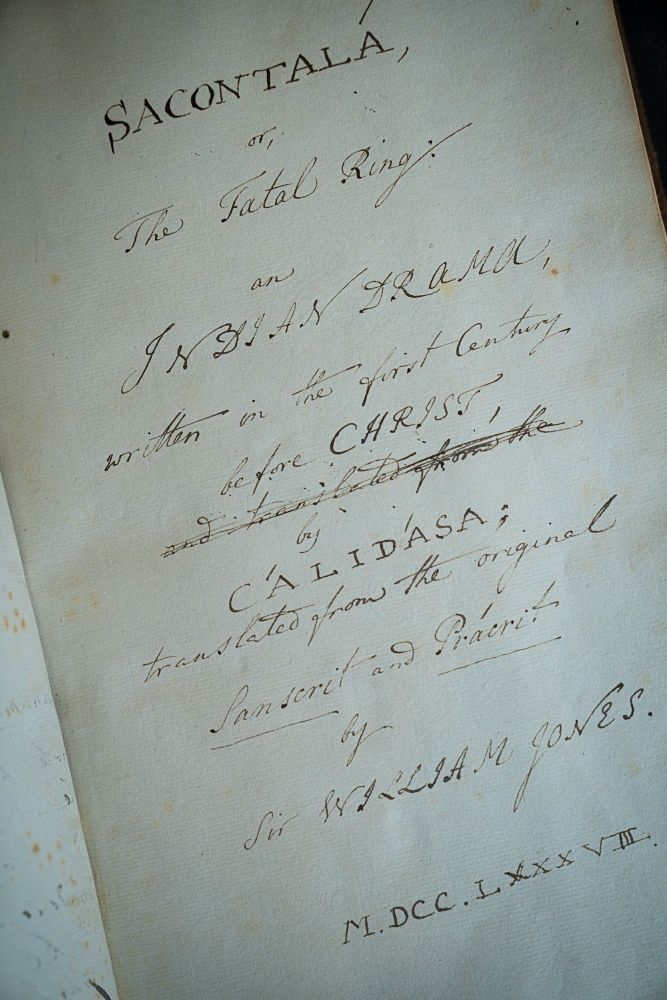 SACONTALÁ,
or,
The Fatal Ring:
an
INDIAN DRAMA,
written in the first Century
before CHRIST,
and translated from the
by
CÁLIDÁSA;
translated from the original
Sanscrit and Prácrit
by
Sir WILLIAM JONES.
M.DCC.LXXXVIII.